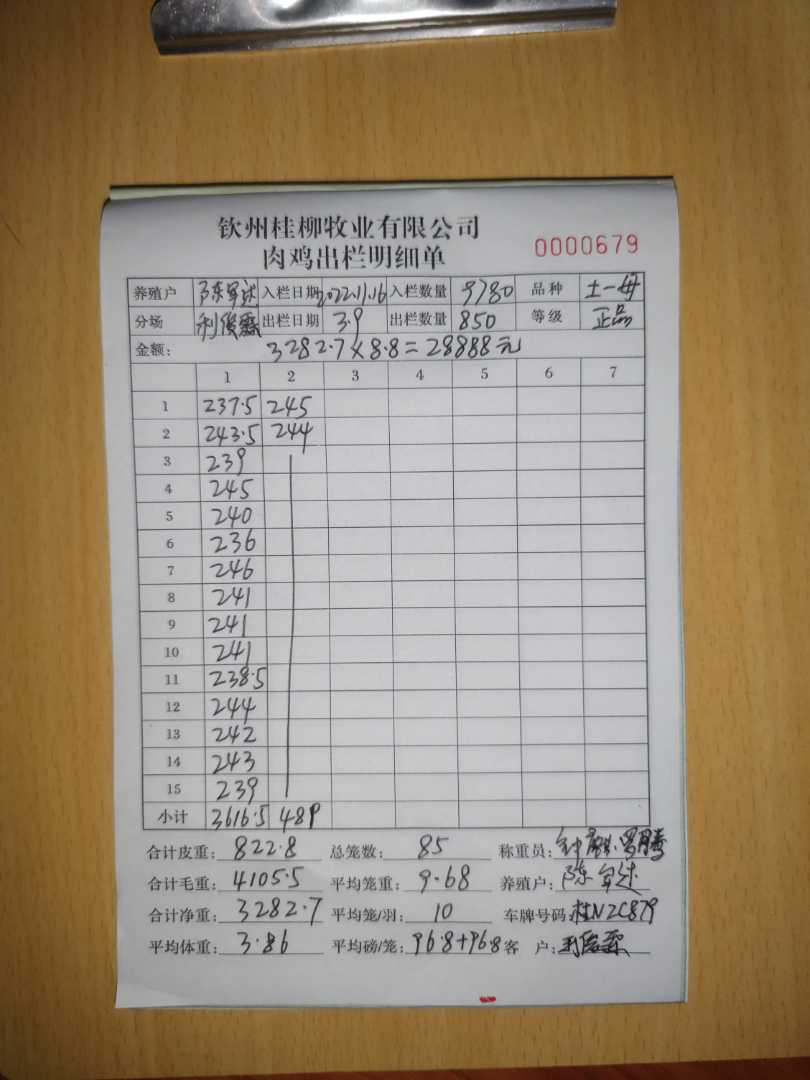 钦州桂柳牧业有限公司
肉鸡出栏明细单 0000679
养殖户 陈军述 入栏日期 2022.11.16 入栏数量 9780 品种 土一母
分场 利俊霖 出栏日期 3.9 出栏数量 850 等级 正品
金额: 3282.7×8.8=28888元
1 2 3 4 5 6 7
1 237.5 245
2 243.5 244
3 239
4 245
5 240
6 236
7 246
8 241
9 241
10 241
11 238.5
12 244
13 242
14 243
15 239
小计 3616.5 489
合计皮重: 822.8 总笼数: 85 称重员: 罗腾
合计毛重: 4105.5 平均笼重: 9.68 养殖户: 陈军述
合计净重: 3282.7 平均笼/羽: 10 车牌号码: 桂NZC879
平均体重: 3.86 平均磅/笼: 96.8+96.8 客 户: 利俊霖